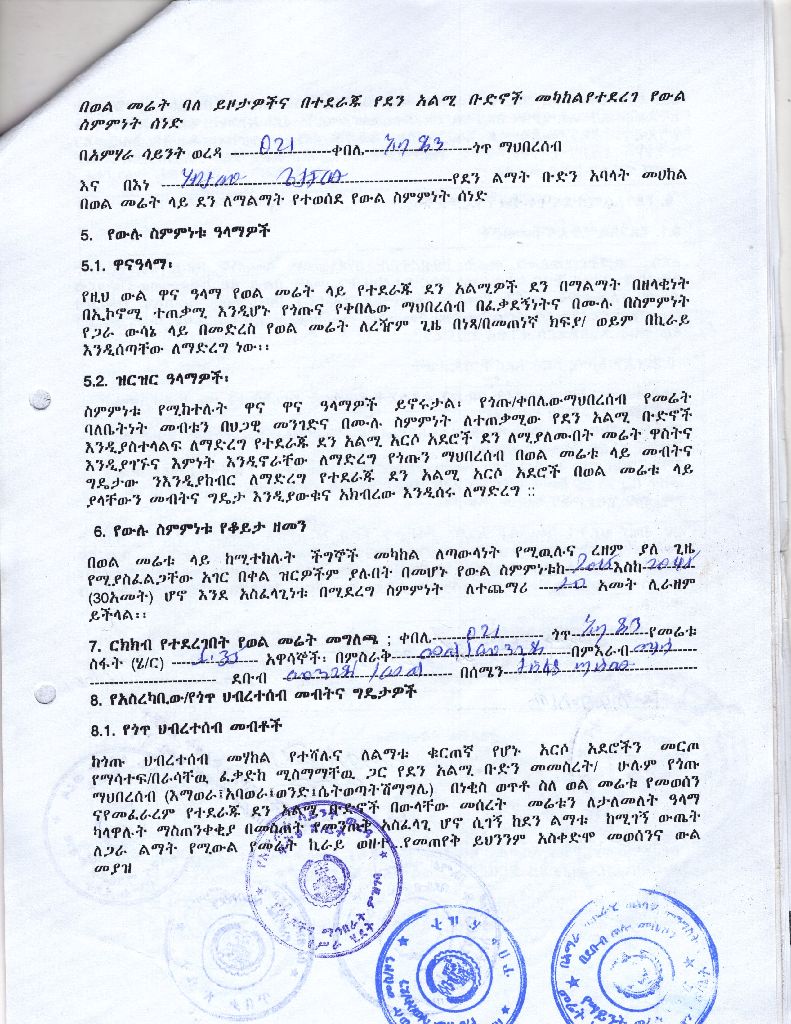 በወል መሬት ባለ ይዞታዎችና በተደራጁ የደን አልሚ ቡድኖች መካከልየተደረገ የውል
ስምምነት ሰነድ
በአምሃራ ሳይንት ወረዳ ---------------021----------ቀበሌ--------------------ጎጥ ማህበረሰብ
እና በእነ ------------------------------የደን ልማት ቡድን አባላት መሀከል
በወል መሬት ላይ ደን ለማልማት የተወሰደ የውል ስምምነት ሰነድ
5. የውሉ ስምምነቱ ዓላማዎች
5.1. ዋናዓላማ፡
የዚህ ውል ዋና ዓላማ የወል መሬት ላይ የተደራጁ ደን አልሚዎች ደን በማልማት በዘላቂነት
በኢኮኖሚ ተጠቃሚ እንዲሆኑ የጎጡና የቀበሌው ማህበረሰብ በፈቃደኝነትና በሙሉ በስምምነት
የጋራ ውሳኔ ላይ በመድረስ የወል መሬት ለረዥም ጊዜ በነጻ/በመጠነኛ ክፍያ/ ወይም በኪራይ
እንዲሰጣቸው ለማድረግ ነው፡፡
5.2. ዝርዝር ዓላማዎች፡
ስምምነቱ የሚከተሉት ዋና ዋና ዓላማዎች ይኖሩታል፡ የጎጡ/ቀበሌውማህበረሰብ የመሬት
ባለቤትነት መብቱን በህጋዊ መንገድና በሙሉ ስምምነት ለተጠቃሚው የደን አልሚ ቡድኖች
እንዲያስተላልፍ ለማድረግ የተደራጁ ደን አልሚ አርሶ አደሮች ደን ለሚያለሙበት መሬት ዋስትና
እንዲያገኙና እምነት እንዲኖራቸው ለማድረግ የጎጡን ማህበረሰብ በወል መሬቱ ላይ መብትና
ግዴታው ንእንዲያከብር ለማድረግ የተደራጁ ደን አልሚ አርሶ አደሮች በወል መሬቱ ላይ
ያላቸውን መብትና ግዴታ እንዲያውቁና አክብረው እንዲሰሩ ለማድረግ ::
6. የውሉ ስምምነቱ የቆይታ ዘመን
በወል መሬቱ ላይ ከሚተከሉት ችግኞች መካከል ለጣውላነት የሚዉሉና ረዘም ያለ ጊዜ
የሚያስፈልጋቸው አገር በቀል ዝርዎችም ያሉበት በመሆኑ የውል ስምምነቱከ---2015---እስከ--2045
(30አመት) ሆኖ እንደ አስፈላጊነቱ በሚደረግ ስምምነት ለተጨማሪ ---10--- አመት ሊራዘም
ይችላል፡፡
7. ርክክብ የተደረገበት የወል መሬት መግለጫ ; ቀበሌ------021------ ጎጥ------የመሬቱ
ስፋት (ሄ/ር) ------------ አዋሳኞች: በምስራቅ---------------በምእራብ------
---------------- ደቡብ ---------------- በሰሜን------------------------
8. የአስረካቢው/የጎጥ ህብረተሰብ መብትና ግዴታዎች
8.1. የጎጥ ህብረተሰብ መብቶች
ከጎጡ ህብረተሰብ መሃከል የተሻሉና ለልማቱ ቁርጠኛ የሆኑ አርሶ አደሮችን መርጦ
የማሳተፍ/በራሳቸዉ ፈቃድከ ሚስማማቸዉ ጋር የደን አልሚ ቡድን መመስረት/ ሁሉም የጎጡ
ማህበረሰብ (እማወራ፤አባወራ፤ወንድ፤ሴትወጣትሽማግሌ) በነቂስ ወጥቶ ስለ ወል መሬቱ የመወሰን
ናየመፈራረም የተደራጁ ደን አልሚ ቡድኖች በውላቸው መሰረት መሬቱን ለታለመለት ዓላማ
ካላዋሉት ማስጠንቀቂያ በመስጠት የመንጠቅ አስፈላጊ ሆኖ ሲገኝ ከደን ልማቱ ከሚገኝ ውጤት
ለጋራ ልማት የሚውል የመሬት ኪራይ ወዘተ..የመጠየቅ ይህንንም አስቀድሞ መወሰንና ውል
መያዝ